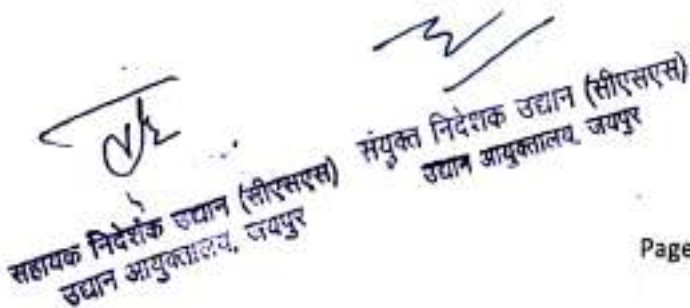 सहायक निदेशक उद्यान (सीएसएस)
उद्यान आयुक्तालय, जयपुर
संयुक्त निदेशक उद्यान (सीएसएस)
उद्यान आयुक्तालय, जयपुर
Page